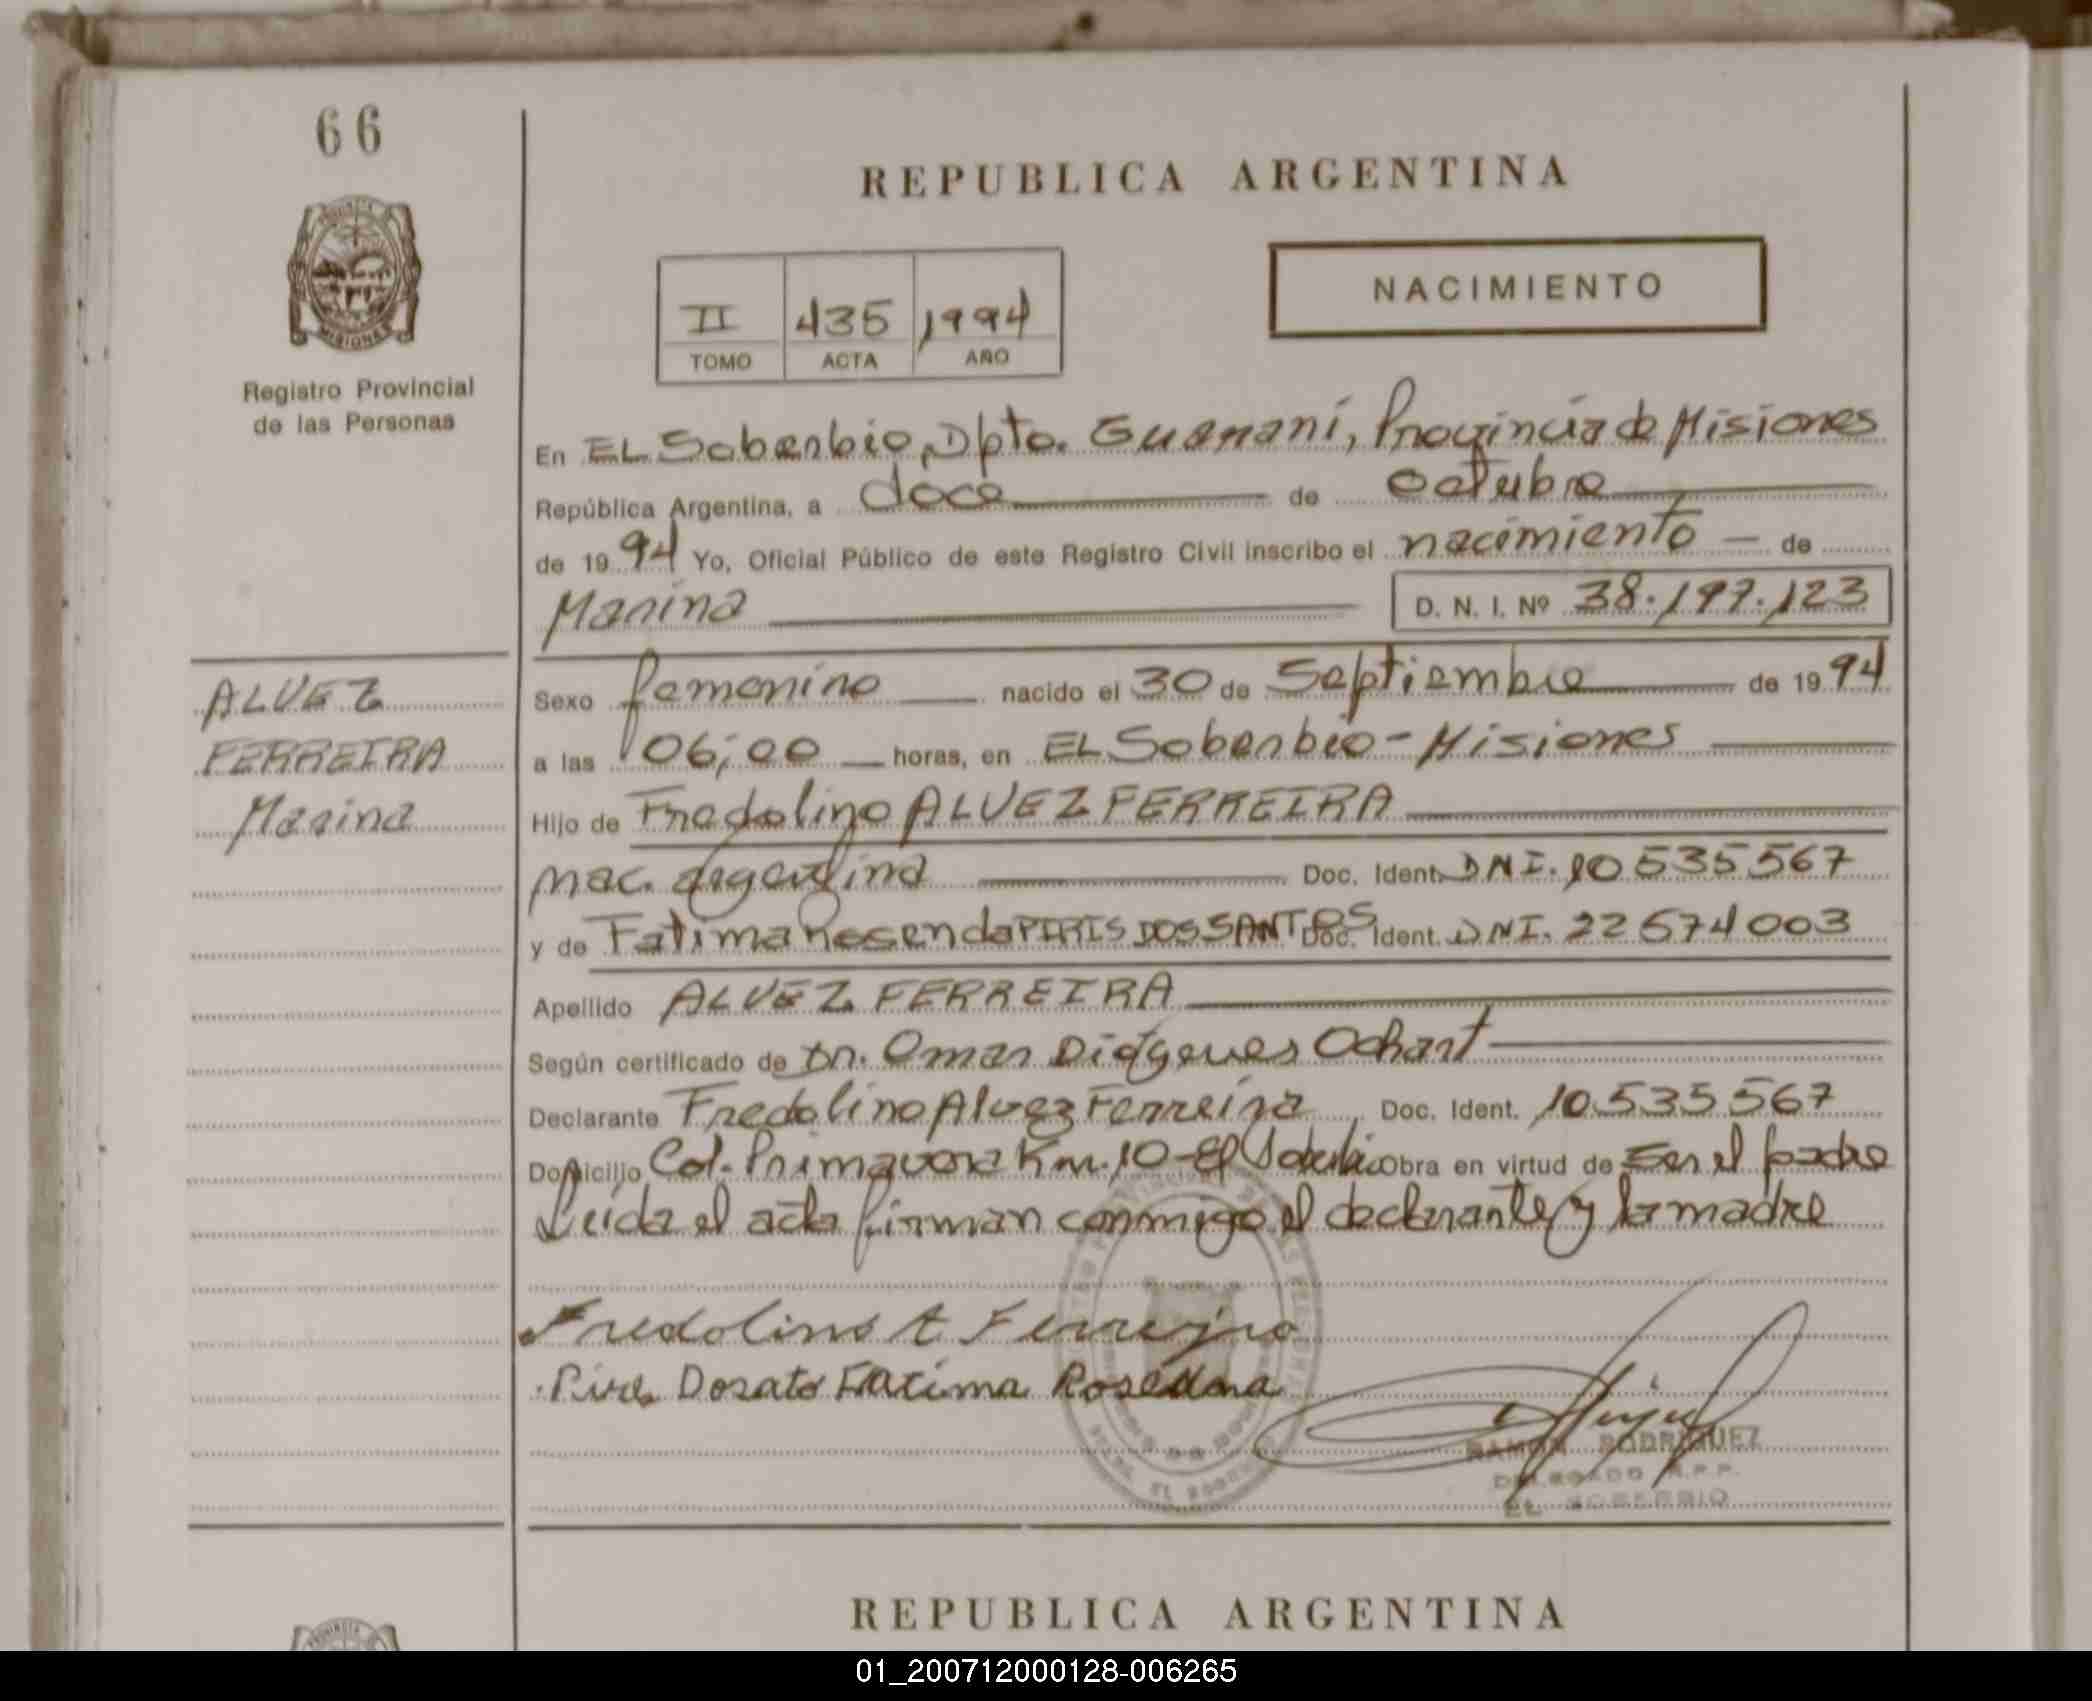 66
REPUBLICA ARGENTINA
NACIMIENTO
II 435 1994
TOMO ACTA AÑO
MISIONES
Registro Provincial
de las Personas
En EL Soberbio, Dpto. Guaraní, Provincia de Misiones
República Argentina, a doce de octubre
de 1994 Yo, Oficial Público de este Registro Civil inscribo el nacimiento - de
Marina D. N. I. Nº 38.197.123
ALVEZ
FERREIRA
Marina
Sexo femenino nacido el 30 de Septiembre de 1994
a las 06;00 horas, en EL Soberbio - Misiones
Hijo de Fredolino ALVEZ FERREIRA
nac. argentina Doc. Ident. DNI. 10535567
y de Fatima Rosenda PIRIS DOS SANTOS Doc. Ident. DNI. 22674003
Apellido ALVEZ FERREIRA
Según certificado de Dr. Omar Diógenes Ochart
Declarante Fredolino Alvez Ferreira Doc. Ident. 10.535567
Domicilio Col. Primavera Km. 10 - El Soberbio Obra en virtud de ser el padre
Leida el acta firman conmigo el declarante y la madre
Fredolino A Ferreira
Fatima
RAMON RODRIGUEZ
DELEGADO R.P.P.
EL SOBERBIO
REPUBLICA ARGENTINA
01_200712000128-006265